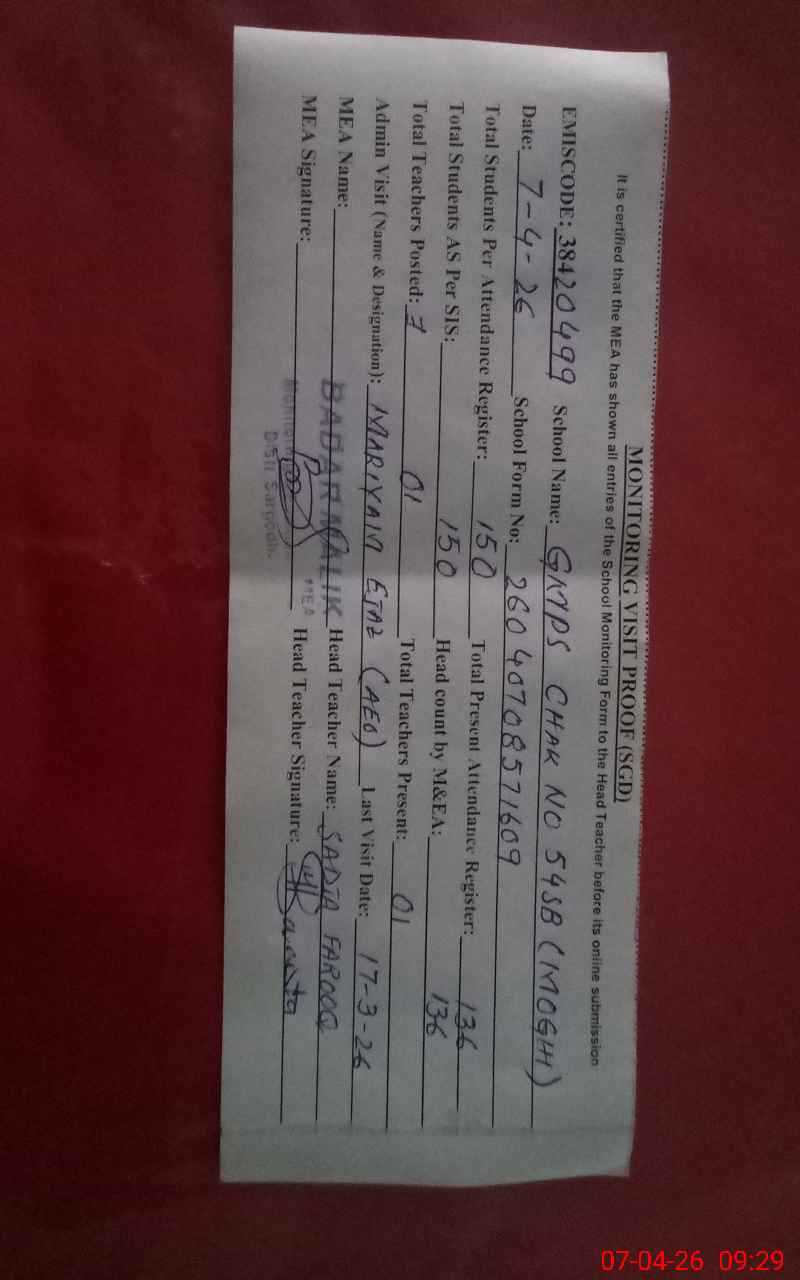 MONITORING VISIT PROOF (SGD)
It is certified that the MEA has shown all entries of the School Monitoring Form to the Head Teacher before its online submission
EMISCODE: 38420499 School Name: GMPS CHAK NO 54SB (MOGHI)
Date: 7-4-26 School Form No: 26040708571609
Total Students Per Attendance Register: 150 Total Present Attendance Register: 136
Total Students AS Per SIS: 150 Head count by M&EA: 136
Total Teachers Posted: 7 01 Total Teachers Present: 01
Admin Visit (Name & Designation): MARIYAM EJAZ (AEO) Last Visit Date: 17-3-26
MEA Name: BADAR MALIK Head Teacher Name: SADIA FAROOQ
MEA Signature: MEA Head Teacher Signature:
07-04-26 09:29